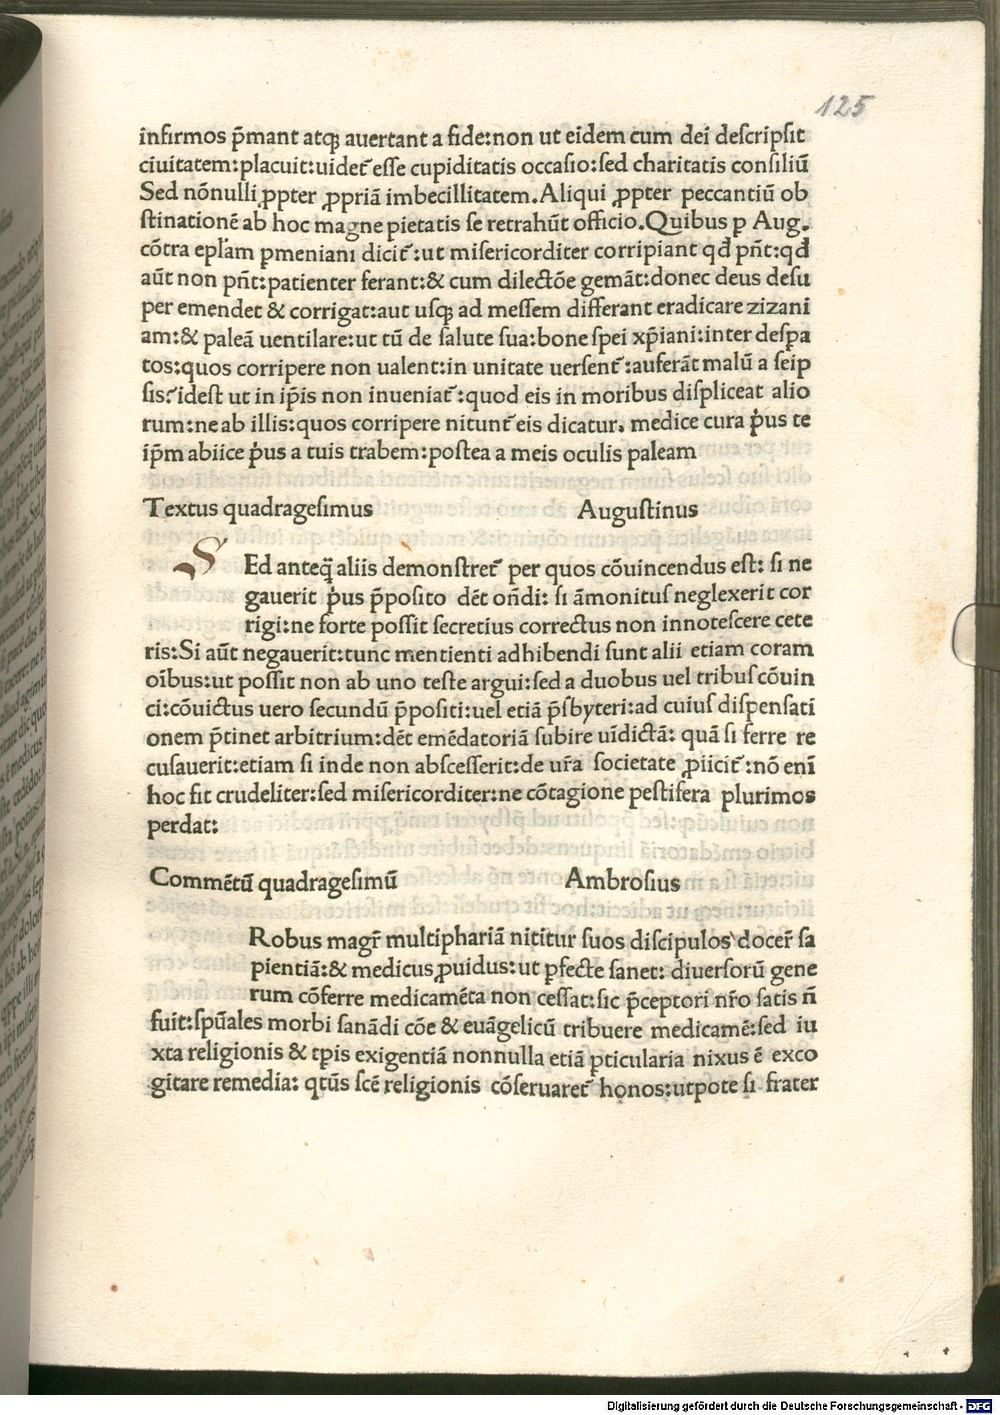 125
infirmos p̄mant atqꝫ auertant a fide:non ut eidem cum dei deſcripſit
ciuitatem:placuit:uidet᷒ eſſe cupiditatis occaſio:ſed charitatis conſiliū
Sed nōnulli ꝓpter ꝓpriā imbecillitatem.Aliqui ꝓpter peccantiū ob
ſtinationē ab hoc magne pietatis ſe retrahūt officio.Quibus ꝑ Aug.
cōtra epl̄am ꝑmeniani dicit᷒:ut miſericorditer corripiant qđ pn̄t:qđ
aūt non pn̄t:patienter ferant:& cum dilectōe gemāt:donec deus deſu
per emendet & corrigat:aut uſqꝫ ad meſſem differant eradicare zizani
am:& paleā uentilare:ut tū de ſalute ſua:bone ſpei xp̄iani:inter deſpa
tos:quos corripere non ualent:in unitate uerſent᷒:auferāt malū a ſeip
ſis:ideſt ut in ip̄is non inueniat᷒:quod eis in moribus diſpliceat alio
rum:ne ab illis:quos corripere nitunt᷒ eis dicatur, medice cura p̍us te
ip̄m abiice p̍us a tuis trabem:poſtea a meis oculis paleam
Textus quadrageſimus Auguſtinus
S Ed anteq̄ aliis demonſtret᷒ per quos cōuincendus eſt: ſi ne
gauerit p̍us p̄poſito dēt on̄di: ſi āmonituſ neglexerit cor
rigi:ne forte poſſit ſecretius correctus non innoteſcere cete
ris:Si aūt negauerit:tunc mentienti adhibendi ſunt alii etiam coram
oībus:ut poſſit non ab uno teſte argui:ſed a duobus uel tribuſ cōuin
ci:cōuictus uero ſecundū p̄poſiti:uel etiā p̄ſbyteri:ad cuiuſ diſpenſati
onem p̄tinet arbitrium:dēt emēdatoriā ſubire uīdictā: quā ſi ferre re
cuſauerit:etiam ſi inde non abſceſſerit:de ur̄a ſocietate ꝓiicit᷒:nō enī
hoc fit crudeliter:ſed miſericorditer:ne cōtagione peſtifera plurimos
perdat:
Commētū quadrageſimū Ambroſius
Robus magr̄ multiphariā nititur ſuos diſcipulos docer̄ ſa
pientiā:& medicus ꝓuidus:ut ꝑfecte ſanet: diuerſorū gene
rum cōferre medicamēta non ceſſat:ſic p̄ceptori nr̄o ſatis n̄
fuit:ſpūales morbi ſanādi cōe & euāgelicū tribuere medicamē:ſed iu
xta religionis & tp̄is exigentiā nonnulla etiā ꝑticularia nixus ē exco
gitare remedia: qtūs ſcē religionis cōſeruaret᷒ honos:utpote ſi frater
Digitalisierung gefördert durch die Deutsche Forschungsgemeinschaft - DFG